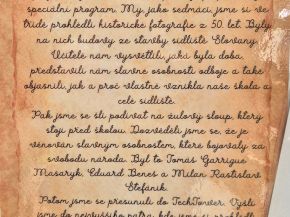 speciální program. My, jako sedmáci, jsme si ve
třídě prohlédli historické fotografie z 50. let. Byly
na nich budovy ze stavby sídliště Slovany.
Učitelé nám vysvětlili, jaká byla doba,
představili nám slavné osobnosti odboje a také
objasnili, jak a proč vlastně vznikla naše škola a
celé sídliště.
Pak jsme se šli podívat na žulový sloup, který
stojí před školou. Dozvěděli jsme se, že je
věnován slavným osobnostem, které bojovaly za
svobodu národa. Byl to Tomáš Garrigue
Masaryk, Eduard Beneš a Milan Rastislav
Štefánik.
Potom jsme se přesunuli do TechTower. Vyšli
jsme do nejvyššího patra, kde jsme si prohlédli